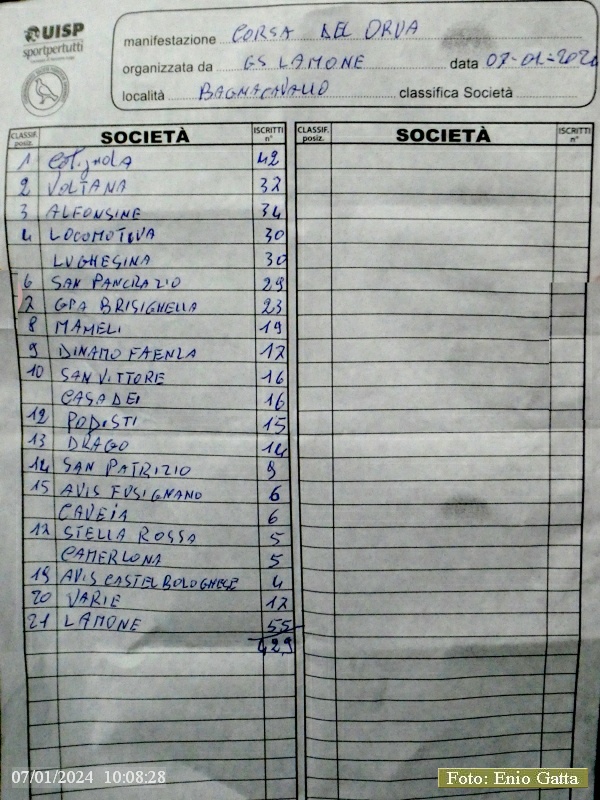 UISP
sportpertutti
manifestazione CORSA DEL ORVA
organizzata da GS LAMONE data 07-01-2024
località BAGNACAVALLO classifica Società
CLASSIF. posiz. SOCIETÀ ISCRITTI n° CLASSIF. posiz. SOCIETÀ ISCRITTI n°
1 Cotignola 42
2 VOLTANA 37
3 ALFONSINE 34
4 LOCOMOTIVA 30
LUGHESINA 30
6 SAN PANCRAZIO 29
7 GPA BRISIGHELLA 23
8 MAMELI 19
9 DINAMO FAENZA 17
10 SAN VITTORE 16
CASADEI 16
12 PODISTI 15
13 DRAGO 14
14 SAN PATRIZIO 9
15 AVIS FUSIGNANO 6
CAVEJA 6
17 STELLA ROSSA 5
CAMERLONA 5
19 AVIS CASTEL BOLOGNESE 4
20 VARIE 17
21 LAMONE 55
429
07/01/2024 10:08:28
Foto: Enio Gatta